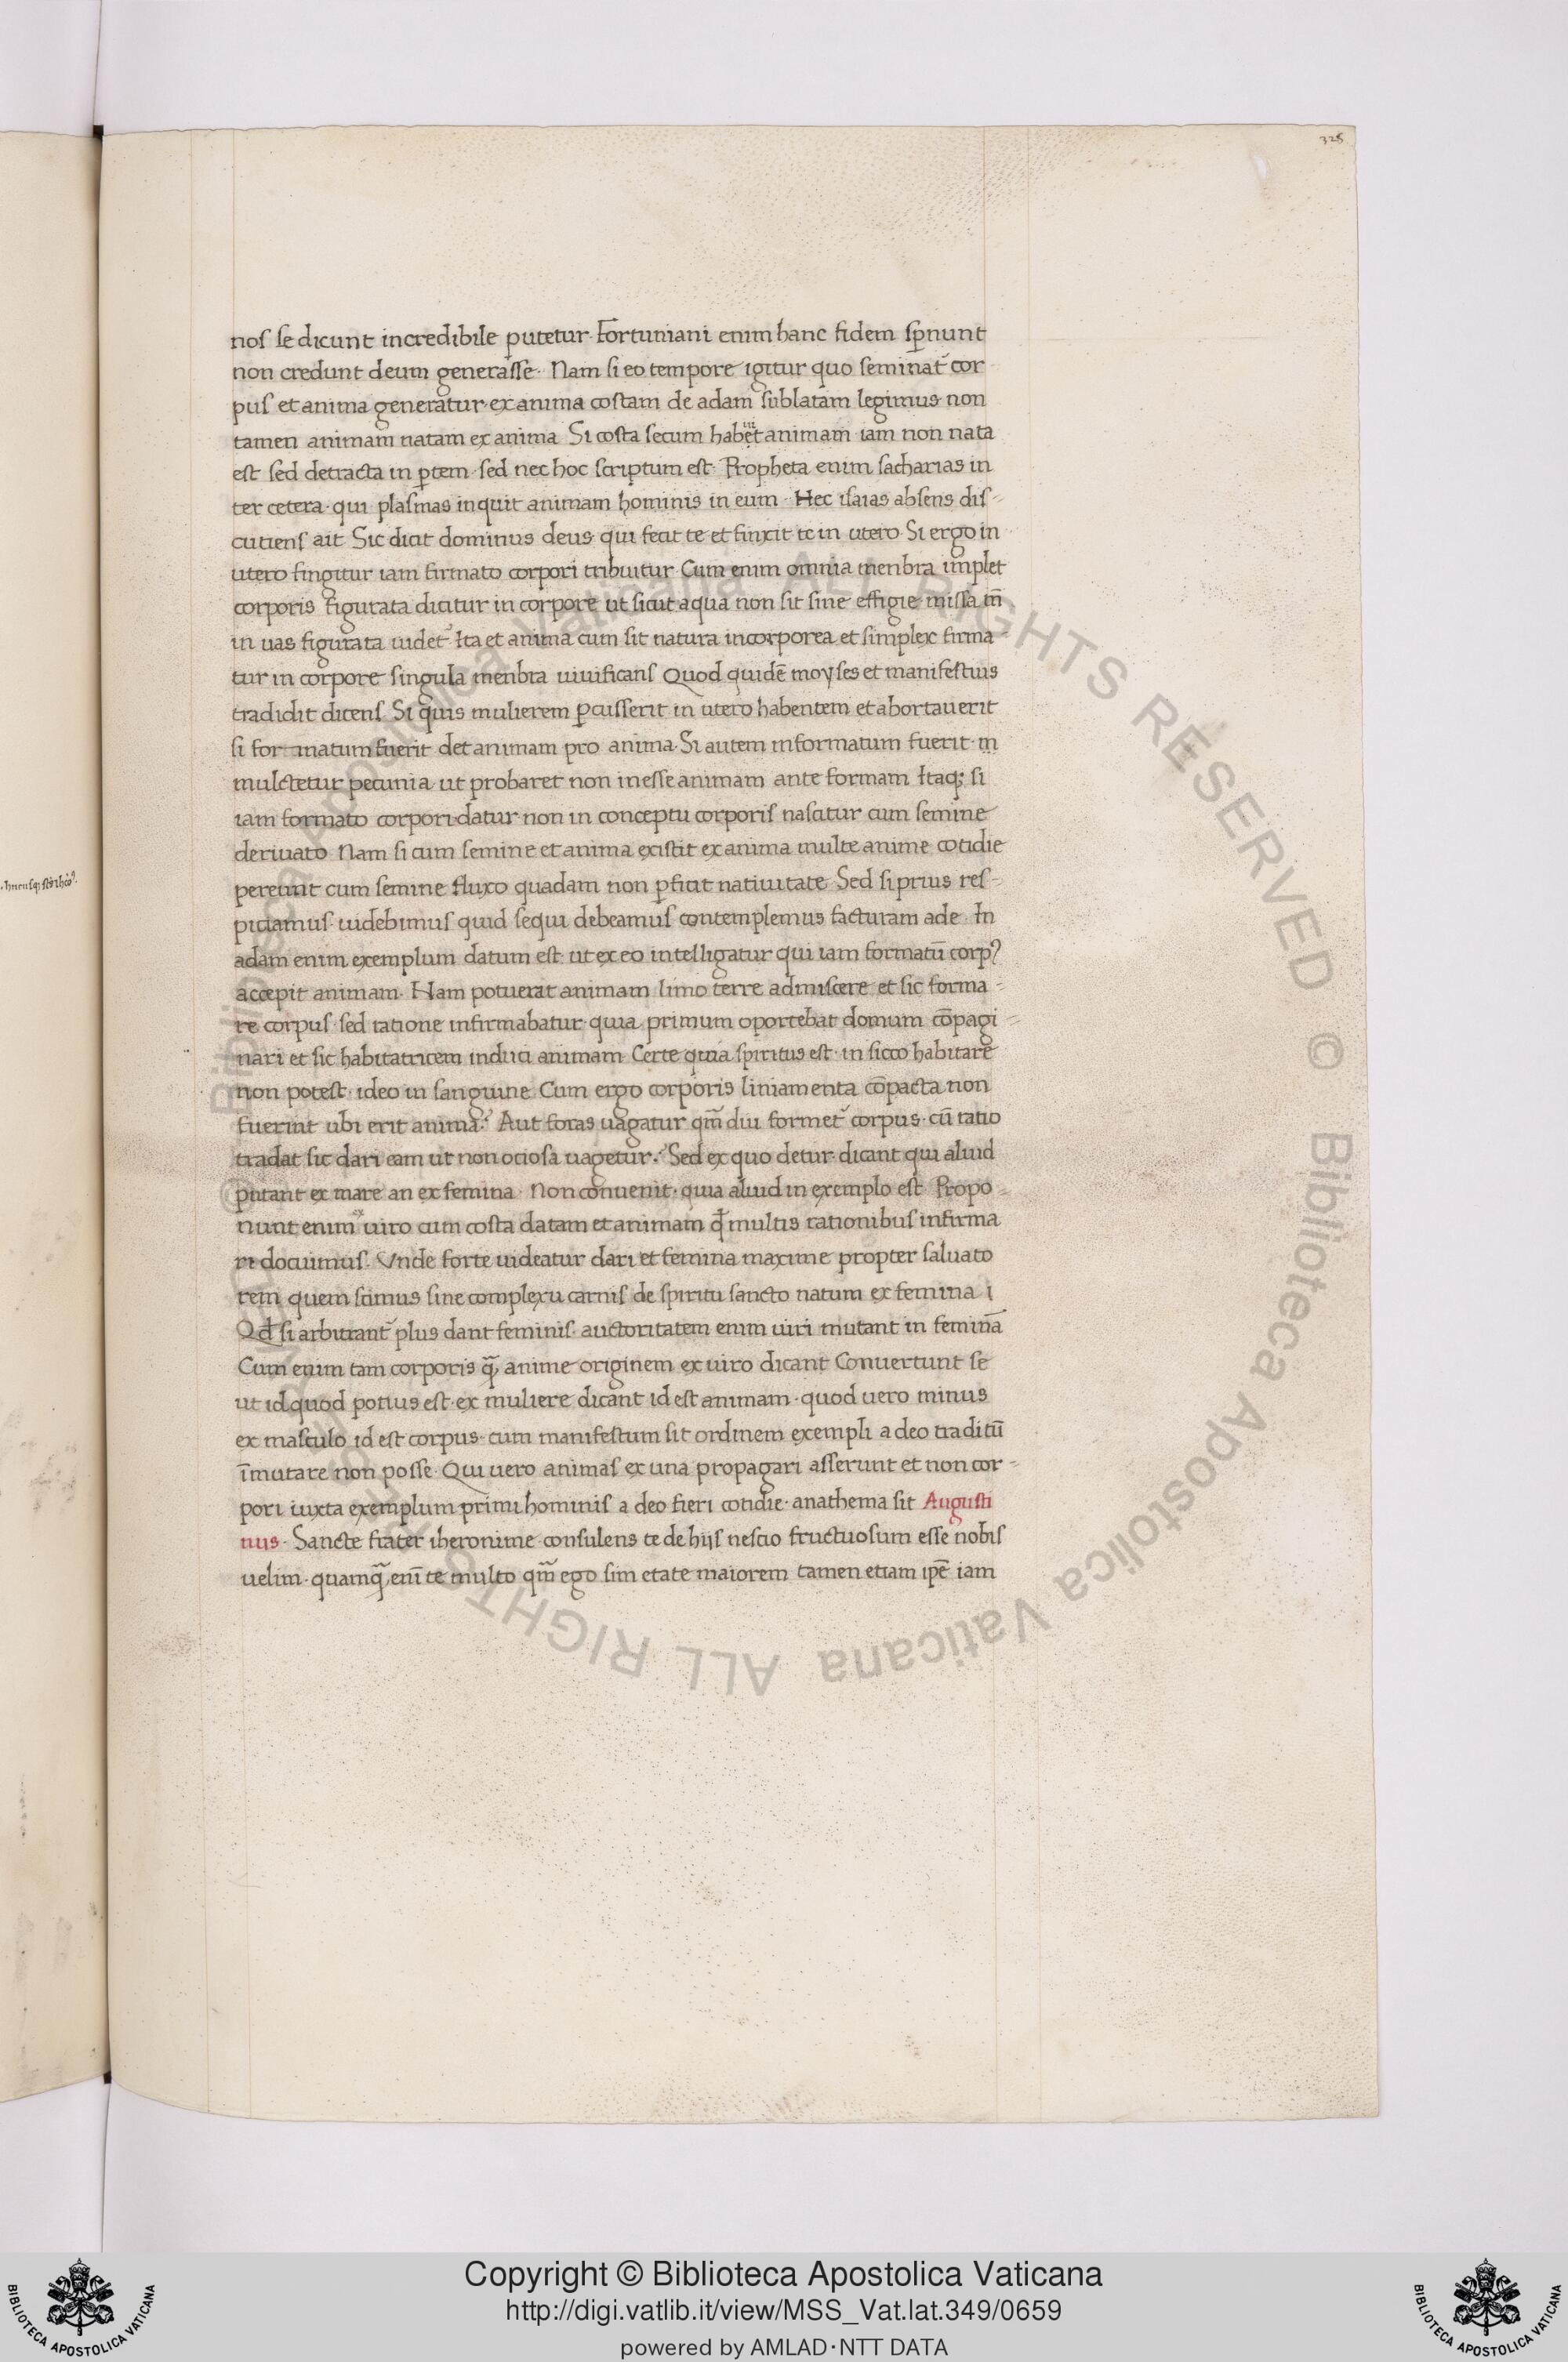 325
nos se dicunt incredibile putetur· Fortuniani enim hanc fidem sp̱nunt
non credunt deum generasse· Nam si eo tempore igitur quo seminat᷑ cor
pus et anima generatur· ex anima costam de adam sublatam legimus non
tamen animam natam ex anima Si costa secum habet animam iam non nata
est sed detracta in ꝑtem· sed nec hoc scriptum est· Propheta enim sacharias in
ter cetera· qui plasmas inquit animam hominis in eum· Hec isaias absens dis-
cutiens ait Sic dicit dominus deus· qui fecit te et finxit te in utero· Si ergo in
utero fingitur iam firmato corpori tribuitur· Cum enim omnia menbra implet
corporis figurata dicitur in corpore ut sicut aqua non sit sine effigie missa tn̄
in uas figurata uidet᷑ Ita et anima cum sit natura incorporea et simplex firma-
tur in corpore singula menbra uiuificans Quod quidē moyses et manifestius
tradidit dicens· Si quis mulierem ꝑcusserit in utero habentem et abortauerit
si for matum fuerit det animam pro anima· Si autem informatum fuerit· in
mulctetur pecunia ut probaret non inesse animam ante formam Itaqꝫ si
iam formato corpori datur non in conceptu corporis nascitur cum semine
deriuato Nam si cum semine et anima existit ex anima multe anime cotidie
pereunt cum semine fluxo quadam non ꝓficit natiuitate Sed si prius res-
piciamus· uidebimus quid sequi debeamus contemplemus facturam ade· In
adam enim exemplum datum est ut ex eo intelligatur qui iam formatū corpꝰ
accepit animam· Nam potuerat animam limo terre admiscere et sic forma-
re corpus· sed ratione infirmabatur· quia primum oportebat domum cōpagi-
nari et sic habitatricem induci animam Certe quia spiritus est· in sicco habitare
non potest· ideo in sanguine Cum ergo corporis liniamenta cōpacta non
fuerint ubi erit anima? Aut foras uagatur qm̄ diu formet᷑ corpus· cū ratio
tradat sic dari eam ut non ociosa uagetur· Sed ex quo detur dicant qui aliud
putant ex mare an ex femina· Non conuenit· quia aliud in exemplo est Propo-
nunt enim ex uiro cum costa datam et animam qđ multis rationibus infirma
ri docuimus· Vnde forte uideatur dari et femina maxime propter saluato
rem quem scimus sine complexu carnis de spiritu sancto natum ex femina
Qđ si arbitrant᷑ plus dant feminis· auctoritatem enim uiri mutant in feminā
Cum enim tam corporis q̄ anime originem ex uiro dicant Conuertunt se
ut id quod potius est· ex muliere dicant id est animam· quod uero minus
ex masculo id est corpus· cum manifestum sit ordinem exempli a deo traditū
īmutare non posse· Qui uero animas ex una propagari asserunt et non cor-
pori iuxta exemplum primi hominis a deo fieri cotidie· anathema sit Augusti
nus· Sancte frater iheronime consulens te de hijs nescio fructuosum esse nobis
uelim· quamq̄ enī te multo qm̄ ego sim etate maiorem tamen etiam ipē iam
© Biblioteca Apostolica Vaticana ALL RIGHTS RESERVED
Copyright © Biblioteca Apostolica Vaticana
http://digi.vatlib.it/view/MSS_Vat.lat.349/0659
powered by AMLAD·NTT DATA
BIBLIOTECA APOSTOLICA VATICANA
BIBLIOTECA APOSTOLICA VATICANA